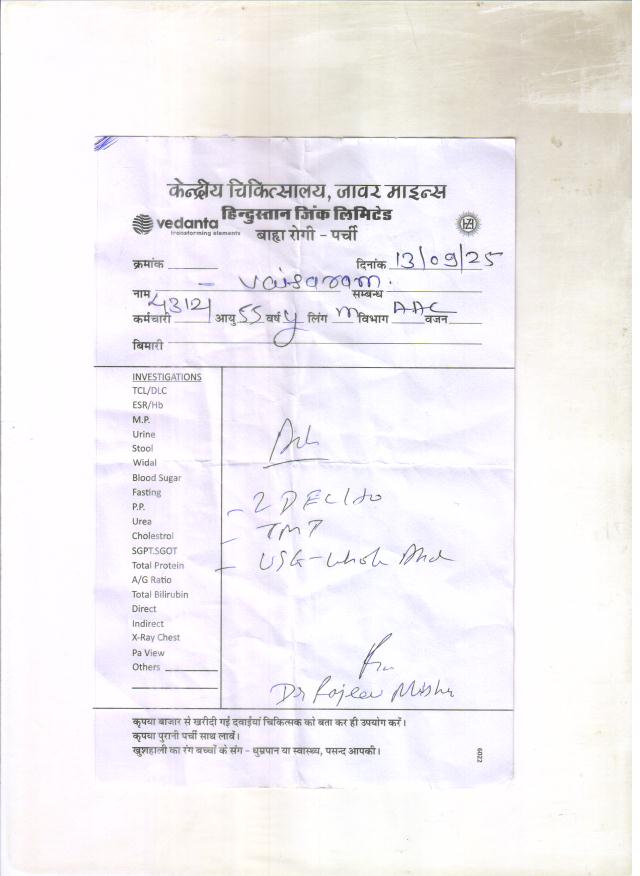 केन्द्रीय चिकित्सालय, जावर माइन्स
vedanta हिन्दुस्तान जिंक लिमिटेड
transforming elements
बाह्य रोगी - पर्ची
HZL
क्रमांक ______ दिनांक 13/09/25
नाम - vaisaram. सम्बन्ध
कर्मचारी 43121 आयु 55 वर्ष y लिंग M विभाग AAC वजन
बिमारी
INVESTIGATIONS
TCL/DLC
ESR/Hb
M.P.
Urine
Stool
Widal
Blood Sugar
Fasting
P.P.
Urea
Cholestrol
SGPT.SGOT
Total Protein
A/G Ratio
Total Bilirubin
Direct
Indirect
X-Ray Chest
Pa View
Others
Adv
- 2 D Echo
- TMT
- USG - whole Abd
Dr Rajeev Mishr
कृपया बाजार से खरीदी गई दवाईयां चिकित्सक को बता कर ही उपयोग करें।
कृपया पुरानी पर्ची साथ लावें।
खुशहाली का रंग बच्चों के संग - धुम्रपान या स्वास्थ्य, पसन्द आपकी।
6022